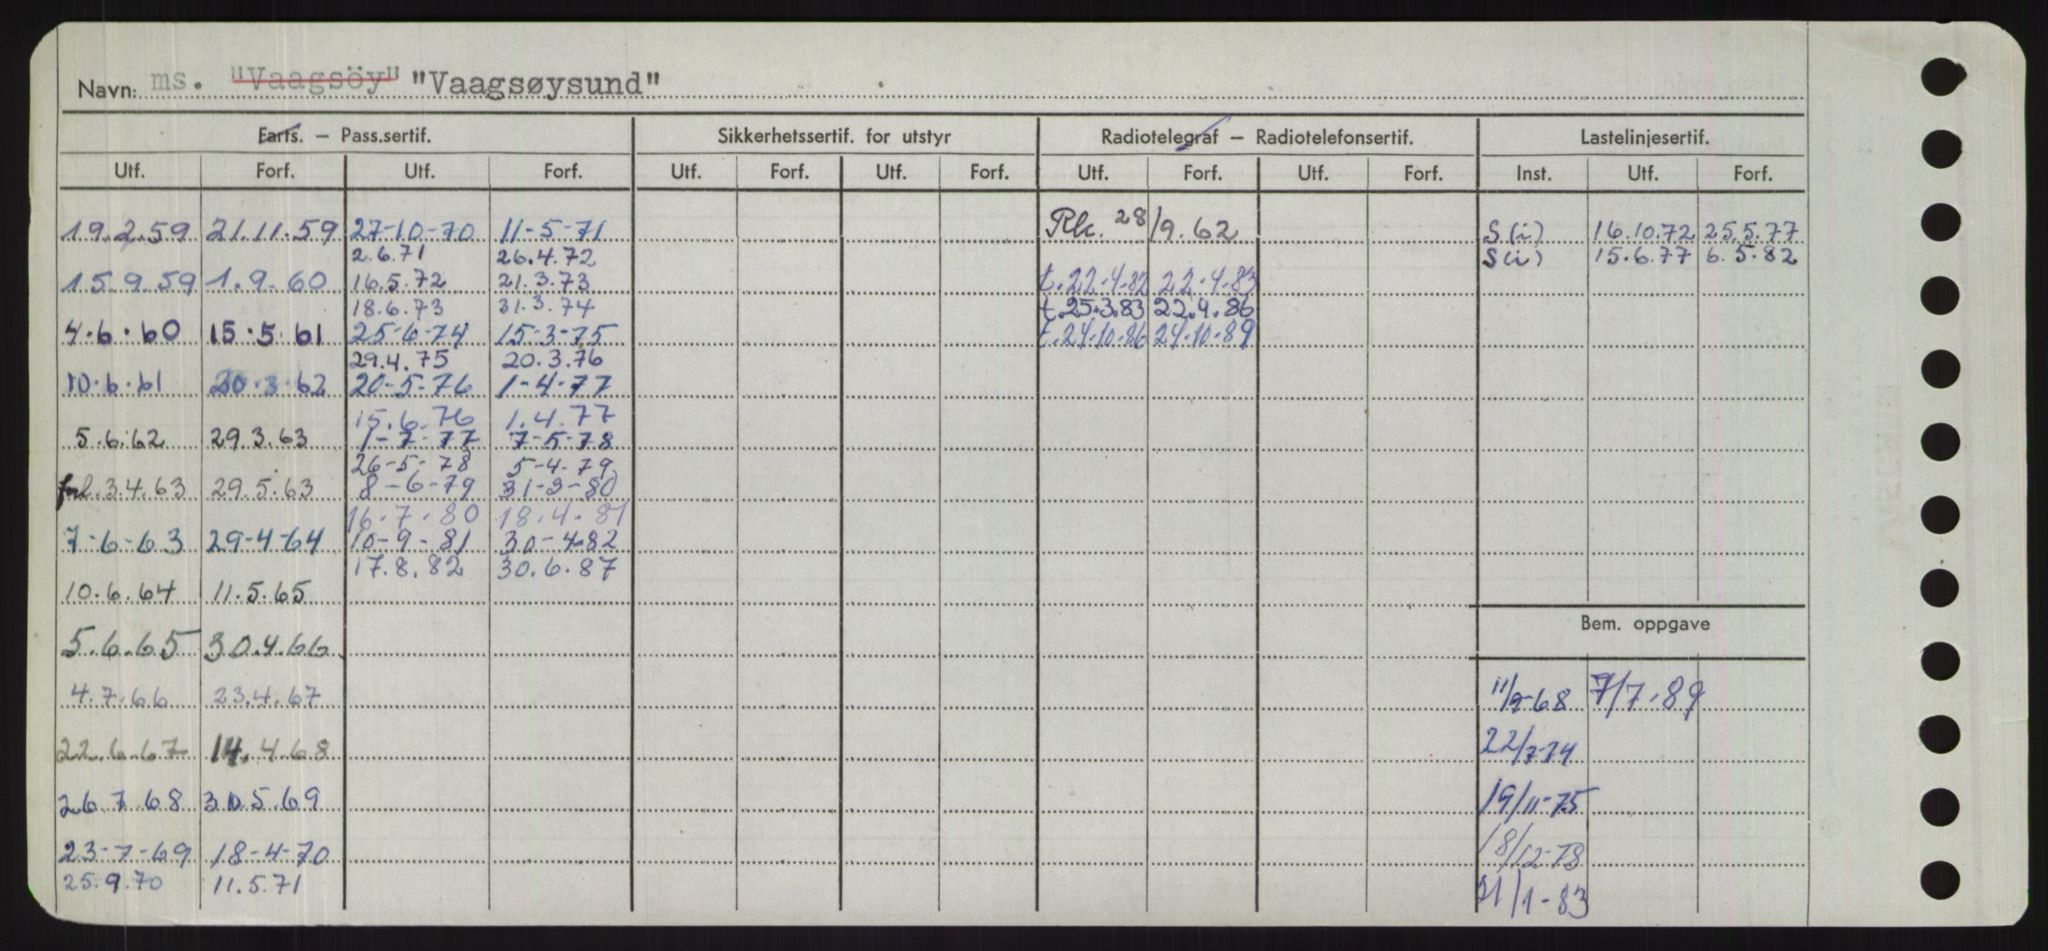 Navn: ms. "Vaagsöy" "Vaagsøysund"
Farts. — Pass.sertif. Sikkerhetssertif. for utstyr Radiotelegraf — Radiotelefonsertif. Lastelinjesertif.
Utf. Forf. Utf. Forf. Utf. Forf. Utf. Forf. Utf. Forf. Utf. Forf. Inst. Utf. Forf.
19.2.59 21.11.59 27-10-70 11-5-71 28/9.62 S(i) 16.10.72 25.5.77
2.6.71 26.4.72 S(i) 15.6.77 6.5.82
15.9.59 1.9.60 16.5.72 21.3.73 t.22.4.82 22.4.83
18.6.73 31.3.74 t.25.3.83 22.4.86
4.6.60 15.5.61 25-6-74 15-3-75 t.24.10.86 24.10.89
29.4.75 20.3.76
10.6.61 20.3.62 20-5-76 1-4-77
15.6.76 1.4.77
5.6.62 29.3.63 1-7-77 7-5-78
26-5-78 5-4-79
forl.3.4.63 29.5.63 8-6-79 31-3-80
16.7.80 18.4.81
7-6-63 29-4-64 10-9-81 30-4-82
17.8.82 30.6.87
10.6.64 11.5.65
Bem. oppgave
5.6.65 30.4.66
4.7.66 23.4.67 11/9-68 7/7.89
22.6.67 14.4.68 22/7-74
26.7.68 30.5.69 19/11-75
23-7-69 18-4-70 18/12-78
25.9.70 11.5.71 21/1-83